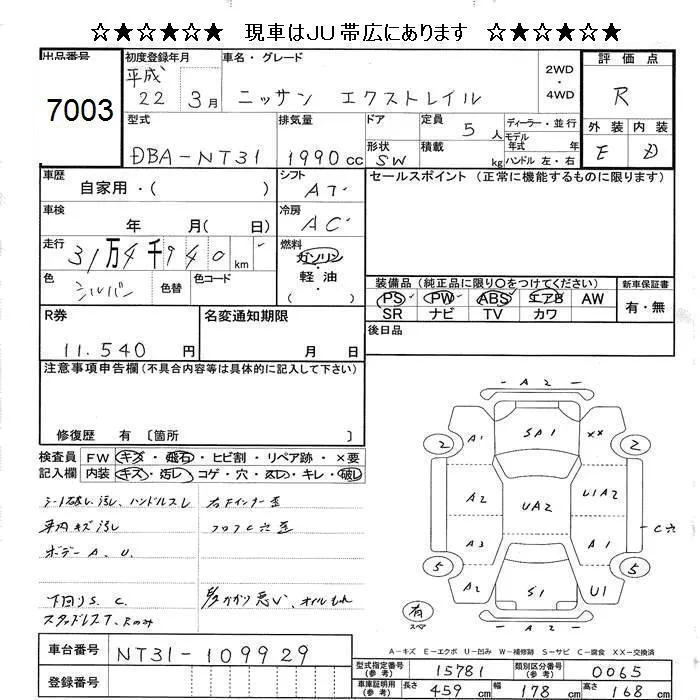 ☆★☆★☆ 現車はJU帯広にあります ☆★☆★☆
出品番号 7003
初度登録年月 平成 22 3月
車名・グレード ニッサン エクストレイル
2WD・4WD
評価点 R
外装 E 内装 D
型式 DBA-NT31
排気量 1990 cc
ドア 形状 SW
定員 5人
積載 kg
ディーラー・並行
モデル年式 年式
ハンドル 左・右
車歴 自家用・( )
シフト AT
車検 年 月( 日)
冷房 AC
走行 31万4千940 km
燃料 ガソリン・軽油・( )
色 シルバー 色替 色コード
セールスポイント(正常に機能するものに限ります)
装備品(純正品に限り〇をつけてください)
PS PW ABS エアB AW
SR ナビ TV カワ
新車保証書 有・無
後日品
R券 11.540 円
名変通知期限 月 日
注意事項申告欄(不具合内容等は具体的に記入して下さい)
修復歴 有〔箇所
検査員記入欄
FW キズ・飛石・ヒビ割・リペア跡・×要
内装 キズ・汚レ・コゲ・穴・スレ・キレ・破レ
シート破レ、汚レ、ハンドルスレ
右Fインナー歪
車内キズ汚レ
フロアC穴歪
ボデーA、U、
下回りS.C.
スタッドレスT、Rのみ
A2
2 A1 SA1 XX 2
A2 UA2 U1A2
C穴
A3 A1
5 A2 S1 U1 5
有 スペア
A2
A-キズ E-エクボ U-凹み W-補修跡 S-サビ C-腐食 XX-交換済
車台番号 NT31-109929
登録番号
型式指定番号(参考) 15781
類別区分番号(参考) 0065
車庫証明用(参考) 長さ 459 cm 幅 178 cm 高さ 168 cm